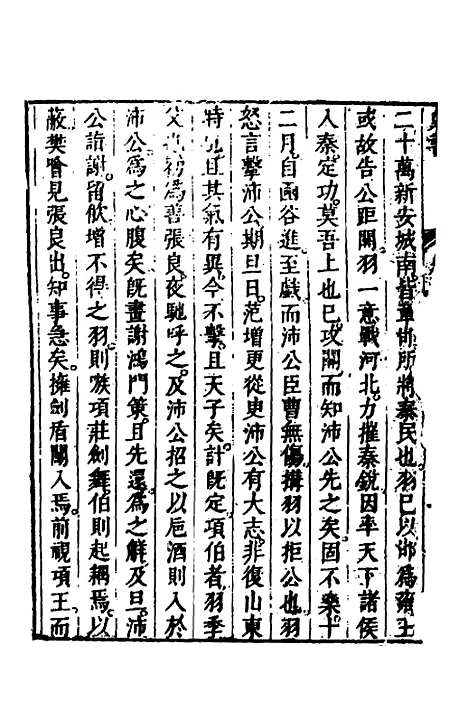 二十萬新安城南皆章邯所將秦民也羽已以邯爲雍王
或故告公距關羽一意戰河北力摧秦銳因率天下諸侯
入秦定功莫吾上也已攻關而知沛公先之矣固不樂十
二月自函谷進至戲而沛公臣曹無傷搆羽以拒公也羽
怒言擊沛公期旦日范增更從臾沛公有大志非復山東
時也且其氣有異今不擊且天子矣計旣定項伯者羽季
父也初爲善張良夜馳呼之及沛公招之以巵酒則入於
沛公爲之心腹矣旣畫謝鴻門策且先還爲之解及旦沛
公詣謝留飲增不得之羽則嗾項莊劍舞伯則起耦焉以
蔽樊噲見張良出知事急矣擁劍盾闖入焉前視項王而